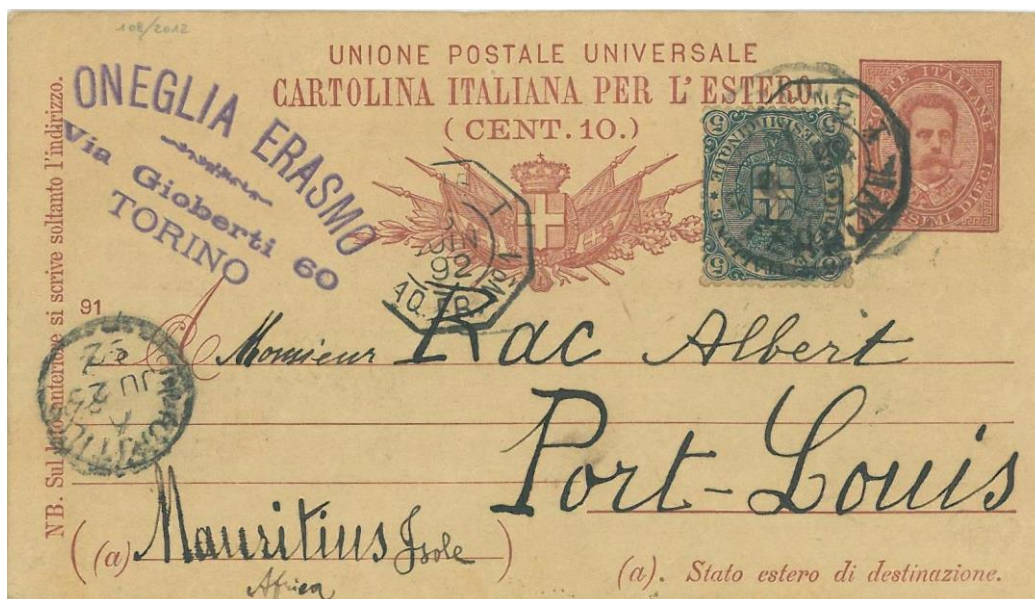 108/2012
UNIONE POSTALE UNIVERSALE
CARTOLINA ITALIANA PER L'ESTERO
(CENT. 10.)
ONEGLIA ERASMO
Via Gioberti 60
TORINO
POSTE ITALIANE
91
NB. Sul lato anteriore si scrive soltanto l'indirizzo.
A Monsieur Rac Albert
Port-Louis
(a) Mauritius Isole
Africa
(a). Stato estero di destinazione.
MAURITIUS
A
JU 23
92